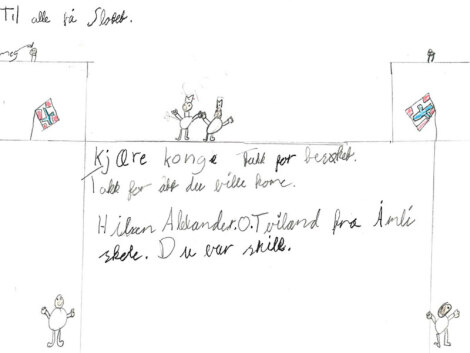 Til alle på Slottet.
meg
Kjære konge Takk for besøket.
Takk for att du ville kome.
Hilsen Alexander.O.Tviland fra Åmli
skole. Du var snill.